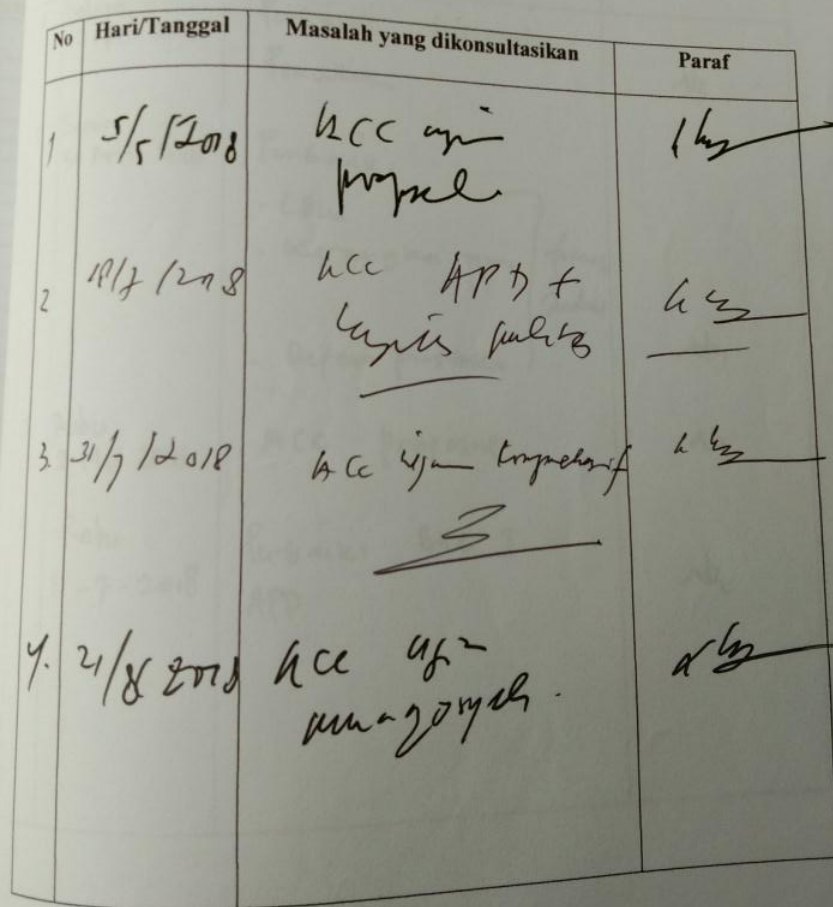 No Hari/Tanggal Masalah yang dikonsultasikan Paraf
1 5/5/2018 ACC ujian
proposal
2 18/7/2018 ACC APD +
3. 31/7/2018 ACC ujian komprehensif
4. 21/8/2018 ACC ujian
munaqosyah.